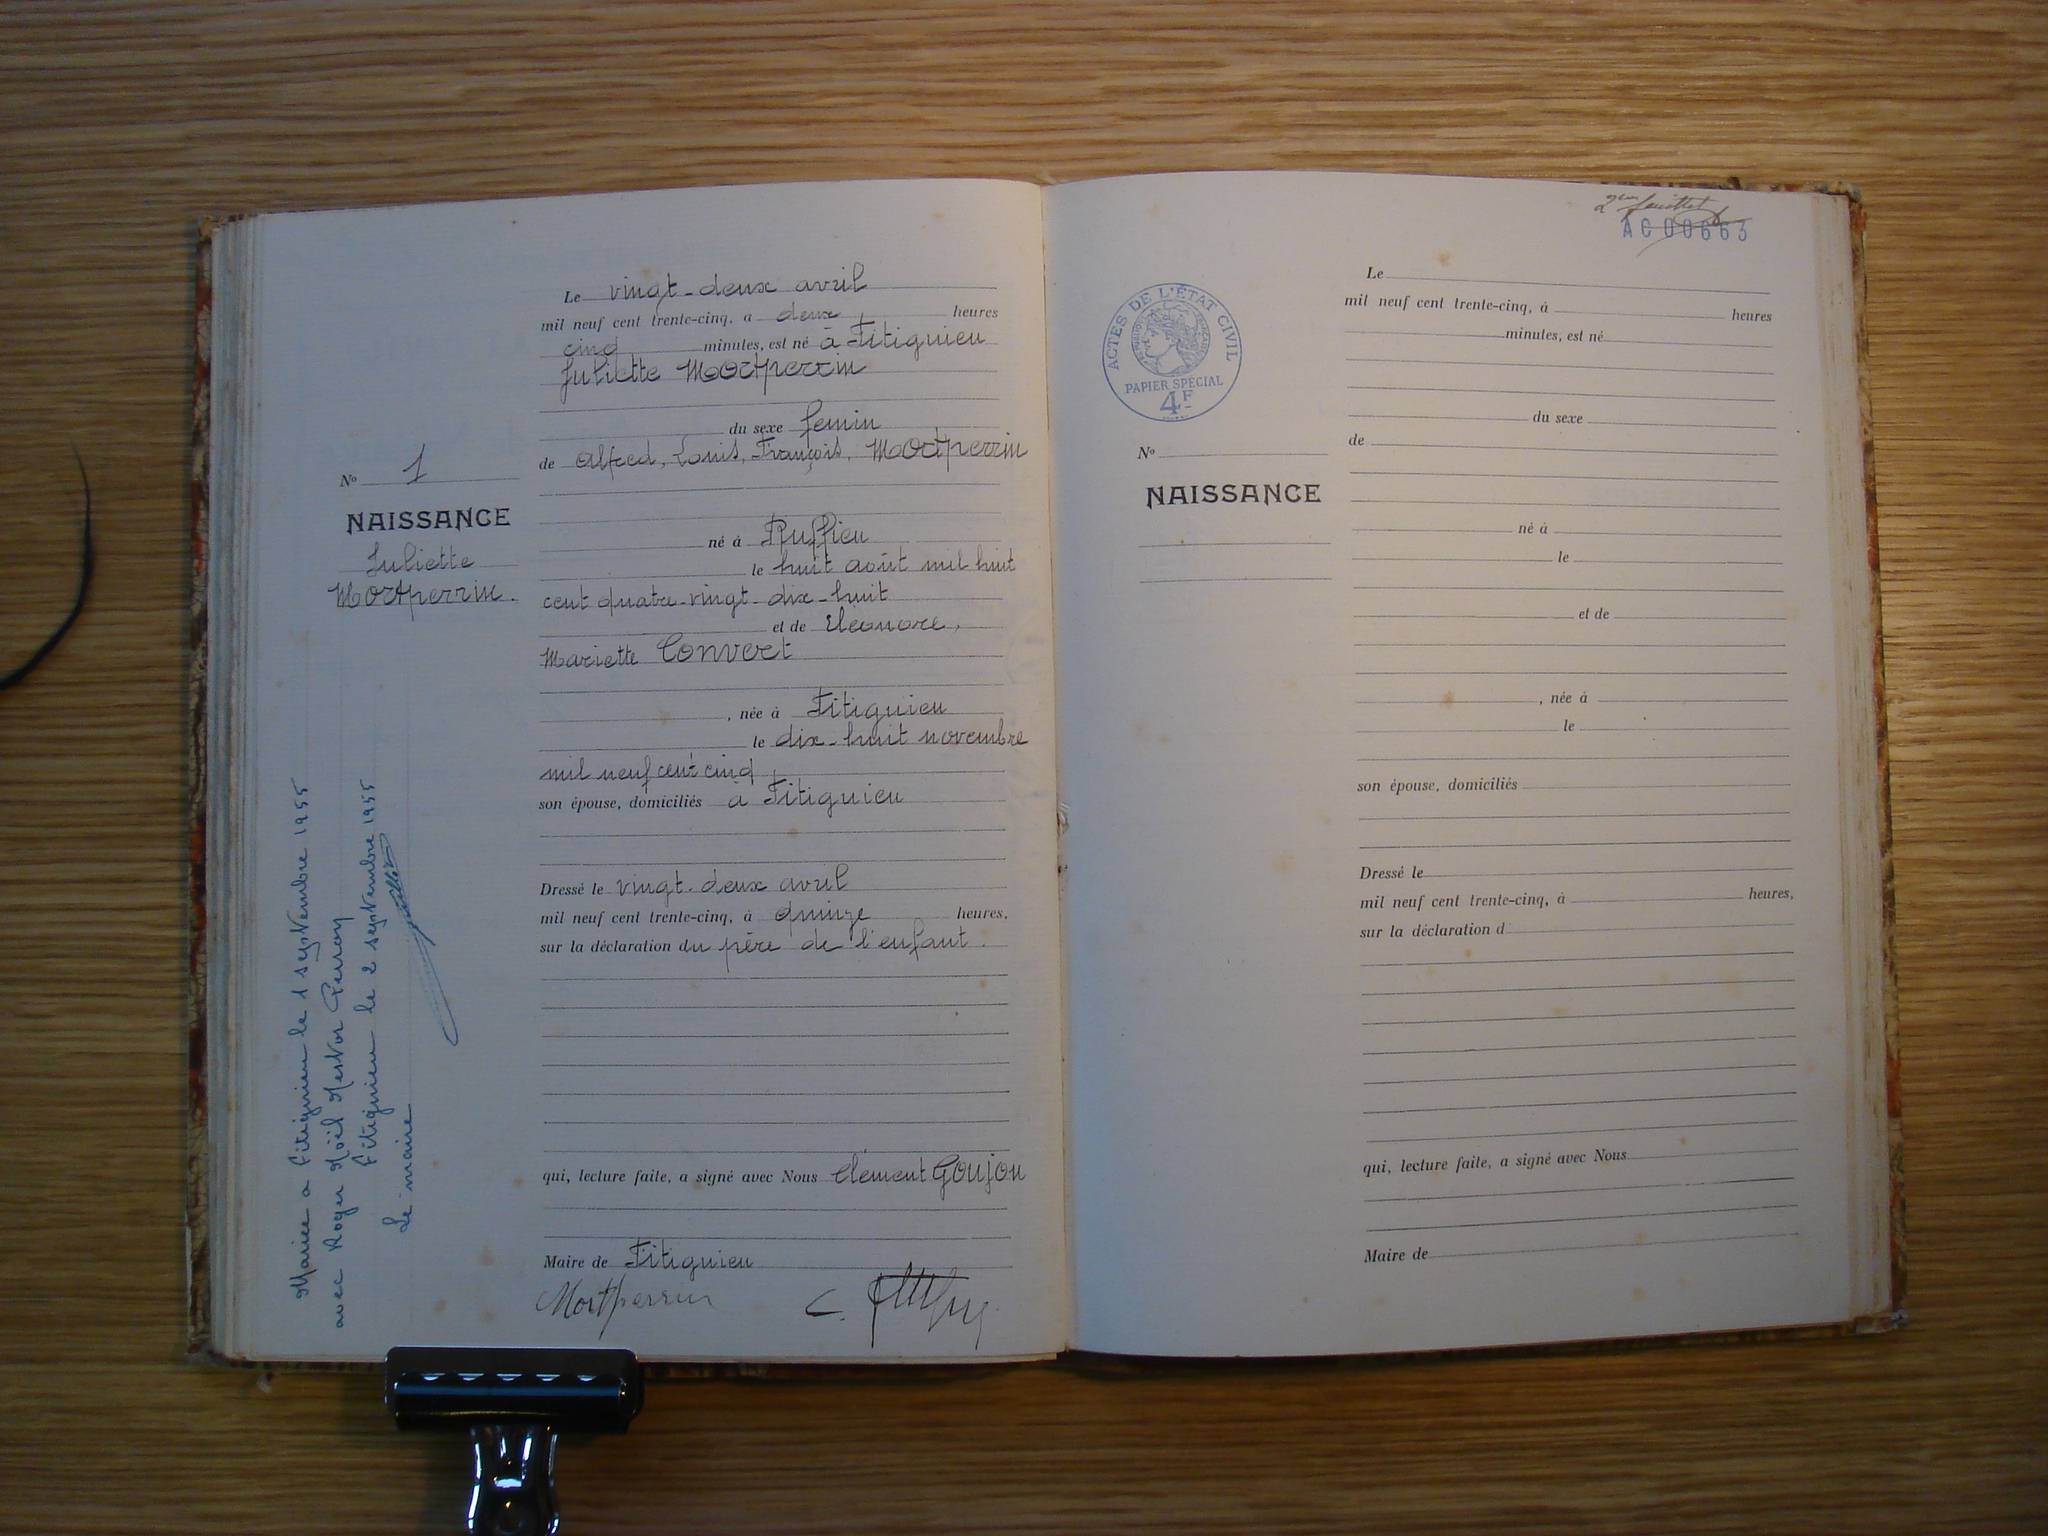 Le vingt-deux avril
mil neuf cent trente-cinq, à deux heures
cinq minutes, est né à Fitignieu
Juliette Mortperrin
du sexe femin
de Alfred, Louis, François, Mortperrin
né à Ruffieu
le huit août mil huit
cent quatre-vingt-dix-huit
et de Eléonore,
Mariette Convert
, née à Fitignieu
le dix-huit novembre
mil neuf cent cinq
son épouse, domiciliés à Fitignieu
Dressé le vingt-deux avril
mil neuf cent trente-cinq, à quinze heures,
sur la déclaration du père de l'enfant.
qui, lecture faite, a signé avec Nous Clément Goujon
Maire de Fitignieu
Mortperrin
C.
No 1
NAISSANCE
Juliette
Mortperrin.
Mariée a Fitignieu le 1 septembre 1955
avec Roger Noël Nestor Perron
Fitignieu le 2 septembre 1955
Le maire
2eme feuillet
AC00663
ACTES DE L'ÉTAT CIVIL
PAPIER SPÉCIAL
4F
No
NAISSANCE
Le
mil neuf cent trente-cinq, à heures
minutes, est né
du sexe
de
né à
le
et de
, née à
le
son épouse, domiciliés
Dressé le
mil neuf cent trente-cinq, à heures,
sur la déclaration d
qui, lecture faite, a signé avec Nous
Maire de